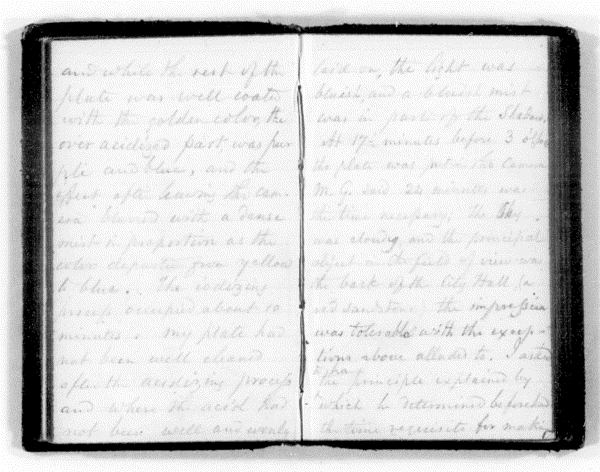 and while the rest of the
plate was well coated
with the golden color, the
over acidised part was pur
ple and blue, and the
effect after leaving the cam-
era blurred with a dense
mist in proportion as the
color departed from yellow
to blue. The iodizing
process occupied about 10
minutes & my plate had
not been well cleaned
after the acidizing process
and where the acid had
not been well and evenly
laid on, the light was
bluish, and a bluish mist
was in part of the Shadows,
At 17½ minutes before 3 o'clock
the plate was put in the Camera
M. G. said 24 minutes was
the time necessary; the Sky
was cloudy and the principal
object in the field of view was
the back of the City Hall (a
red sandstone) the impression
was tolerable with the excep-
tions above alluded to. I asked
the principle explained by
which he determined beforehand
the time requisite for making